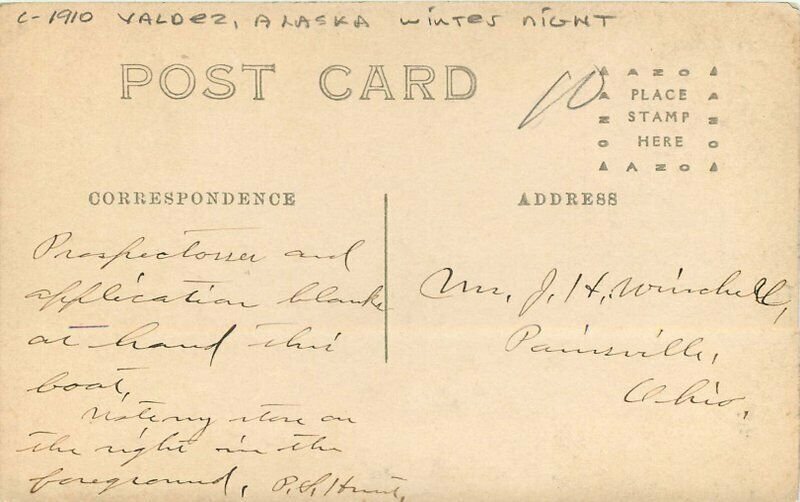 C-1910 VALDEZ, ALASKA WINTER NIGHT
POST CARD
10
AZO
PLACE
STAMP
HERE
AZO
CORRESPONDENCE
ADDRESS
Prospectusses and
application blanks
at hand this
boat,
Note my store on
the right in the
foreground, P.S. Hunt,
Mr. J. H. Winchell,
Painsville,
Ohio,